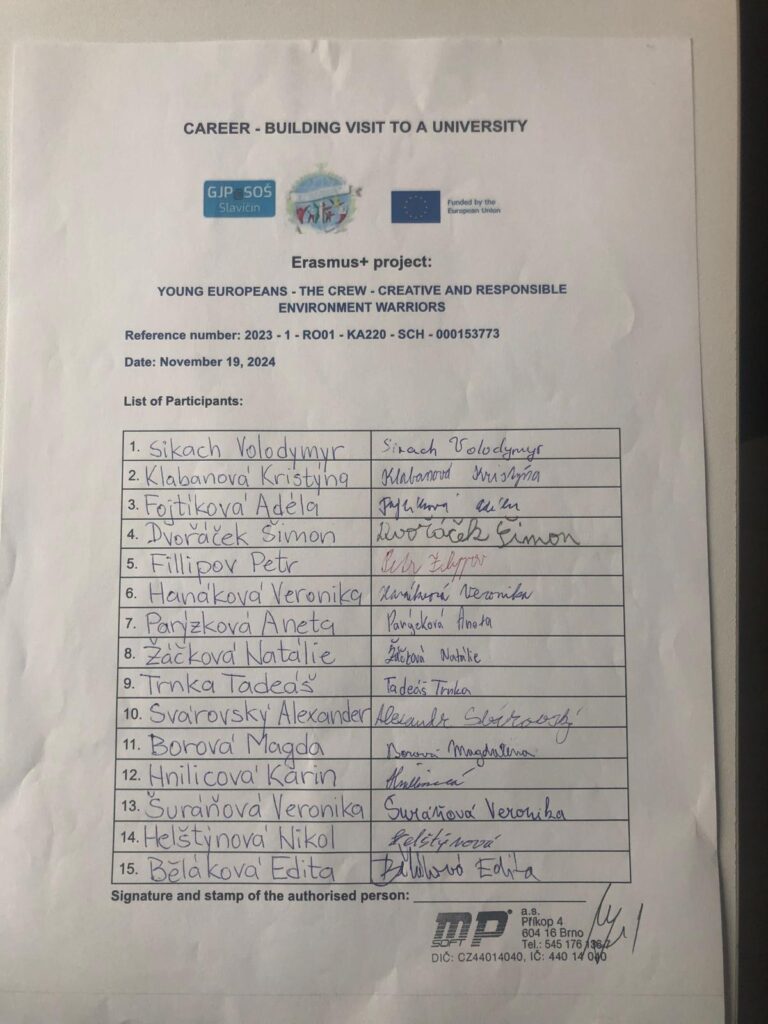 CAREER - BUILDING VISIT TO A UNIVERSITY
GJP SOŠ
Slavičín
Funded by the
European Union
Erasmus+ project:
YOUNG EUROPEANS - THE CREW - CREATIVE AND RESPONSIBLE
ENVIRONMENT WARRIORS
Reference number: 2023 - 1 - RO01 - KA220 - SCH - 000153773
Date: November 19, 2024
List of Participants:
1. Sikach Volodymyr Sikach Volodymyr
2. Klabanová Kristýna Klabanová Kristýna
3. Fojtíková Adéla Fojtíková Adéla
4. Dvořáček Šimon Dvořáček Šimon
5. Fillipov Petr Petr Filippov
6. Hanáková Veronika Hanáková Veronika
7. Parýzková Aneta Parýzková Aneta
8. Žáčková Natálie Žáčková Natálie
9. Trnka Tadeáš Tadeáš Trnka
10. Svárovský Alexander Alexandr Svárovský
11. Borová Magda Borová Magdaléna
12. Hnilicová Karin Hnilicová
13. Šuráňová Veronika Šuráňová Veronika
14. Helštýnová Nikol Helštýnová
15. Běláková Edita Běláková Edita
Signature and stamp of the authorised person:
mp SOFT a.s.
Příkop 4
604 16 Brno
Tel.: 545 176 136-7
DIČ: CZ44014040, IČ: 440 14 040